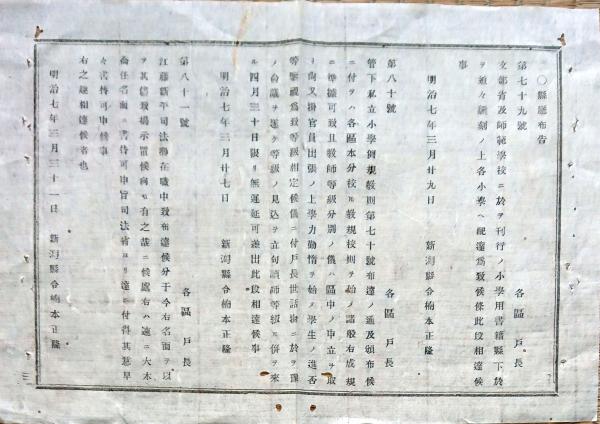 〇縣廳布告
第七十九號 各區 戶長
文部省及師範學校ニ於テ刊行ノ小學用書籍縣下於
テ追々飜刻ノ上各小學ヘ配達爲致候條此段相達候
事
明治七年三月廿九日 新潟縣令楠本正隆
第八十號 各區 戶長
管下私立小學假規敎則第七十號布達ノ通及頒布候
ニ付テハ各區本分校ル敎規校則ヲ始ノ諸般右成規
ニ準據可致且敎師等級分別ノ儀ハ區中ノ申立ヲ取
リ尙又掛官員出張ノ上學力勤惰ヲ始ノ學生ノ進否
等鑒視爲致等級相定候儀ニ付戶長世話掛ニ於テ豫
ノ會議ヲ遂ケ等級ノ見込ヲ立句讀師等級ニ併セ來
ル四月三十日限リ無遲延可差出此段相達候事
明治七年三月廿七日 新潟縣令楠本正隆
第八十一號 各區 戶長
江藤新平司法卿在職中致布達候分于今右名面ヲ以
テ其儘致揭示置候向モ有之哉ニ候處右ハ速ニ大木
喬任名面ニ書替可申旨司法省ヨリ達ニ付得其意早
々書替可申候事
右之趣相達候者也
明治七年三月三十一日 新潟縣令楠本正隆